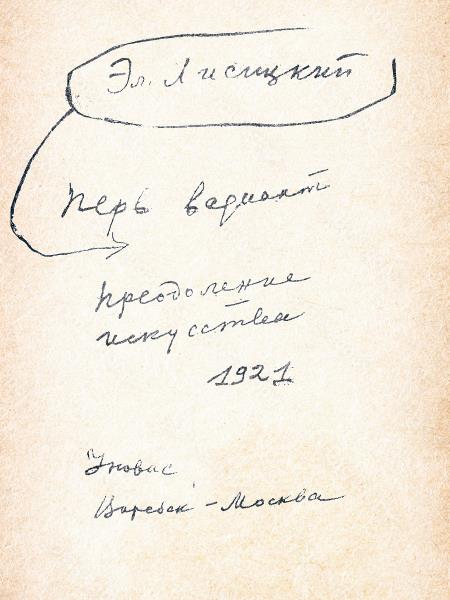 Эл. Лисицкий
Перв вариант
Преодоление
искусства
1921
"Уновис"
Витебск - Москва